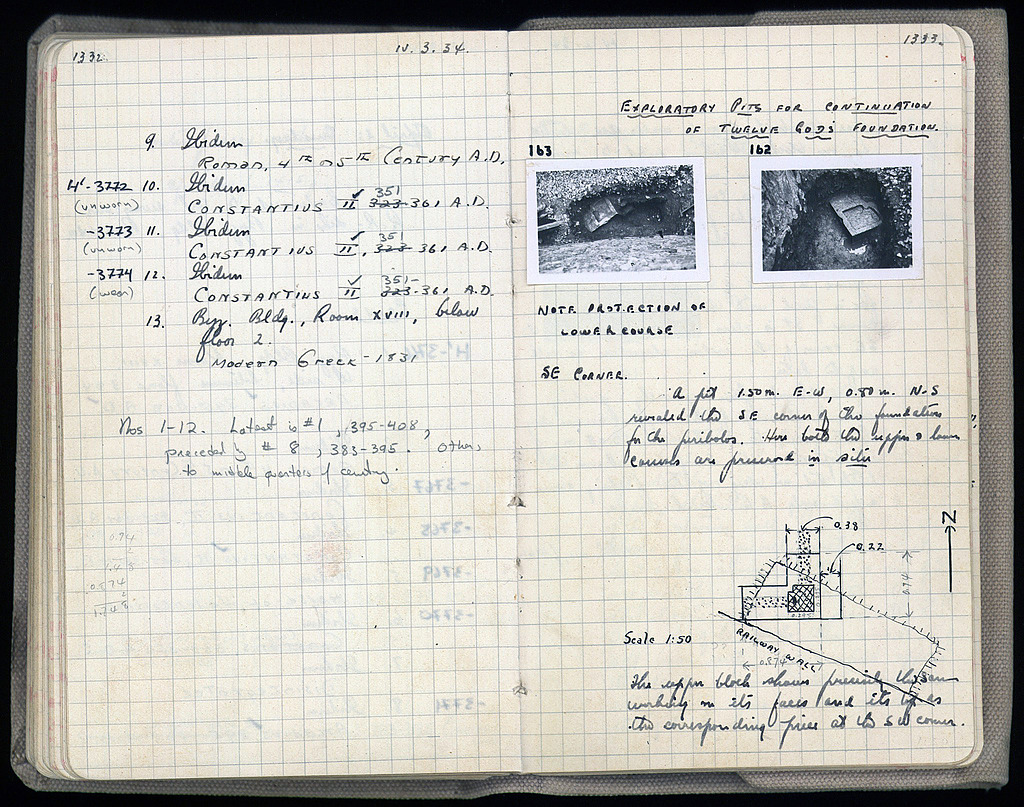 1332
IV. 3. 34.
9. Ibidem
Roman, 4TH or 5TH Century A.D.
H'-3772 10. Ibidem
(unworn) CONSTANTIUS II 351
323-361 A.D.
-3773 11. Ibidem
(unworn) CONSTANTIUS II, 351
323-361 A.D.
-3774 12. Ibidem
(worn) CONSTANTIUS II 351-
323-361 A.D.
13. Byz. Bldg., Room XVIII, below
floor 2.
Modern Greek - 1831
Nos 1-12. Latest is #1, 395-408,
preceded by # 8, 383-395. Others
to middle quarters of century.
0.74
2
1.48
0.874
2
1.748
1333.
EXPLORATORY PITS FOR CONTINUATION
OF TWELVE GODS FOUNDATION.
163 162
NOTE PROJECTION OF
LOWER COURSE
SE CORNER.
A pit 1.50m. E-W, 0.80m. N-S
revealed the SE corner of the foundation
for the peribolos. Here both the upper & lower
courses are preserved in situ
0.38
N
0.22
0.74
0.295
Scale 1:50
RAILWAY WALL
0.874
The upper block shows precisely the same
working on its faces and its top as
the corresponding piece at the SW corner.